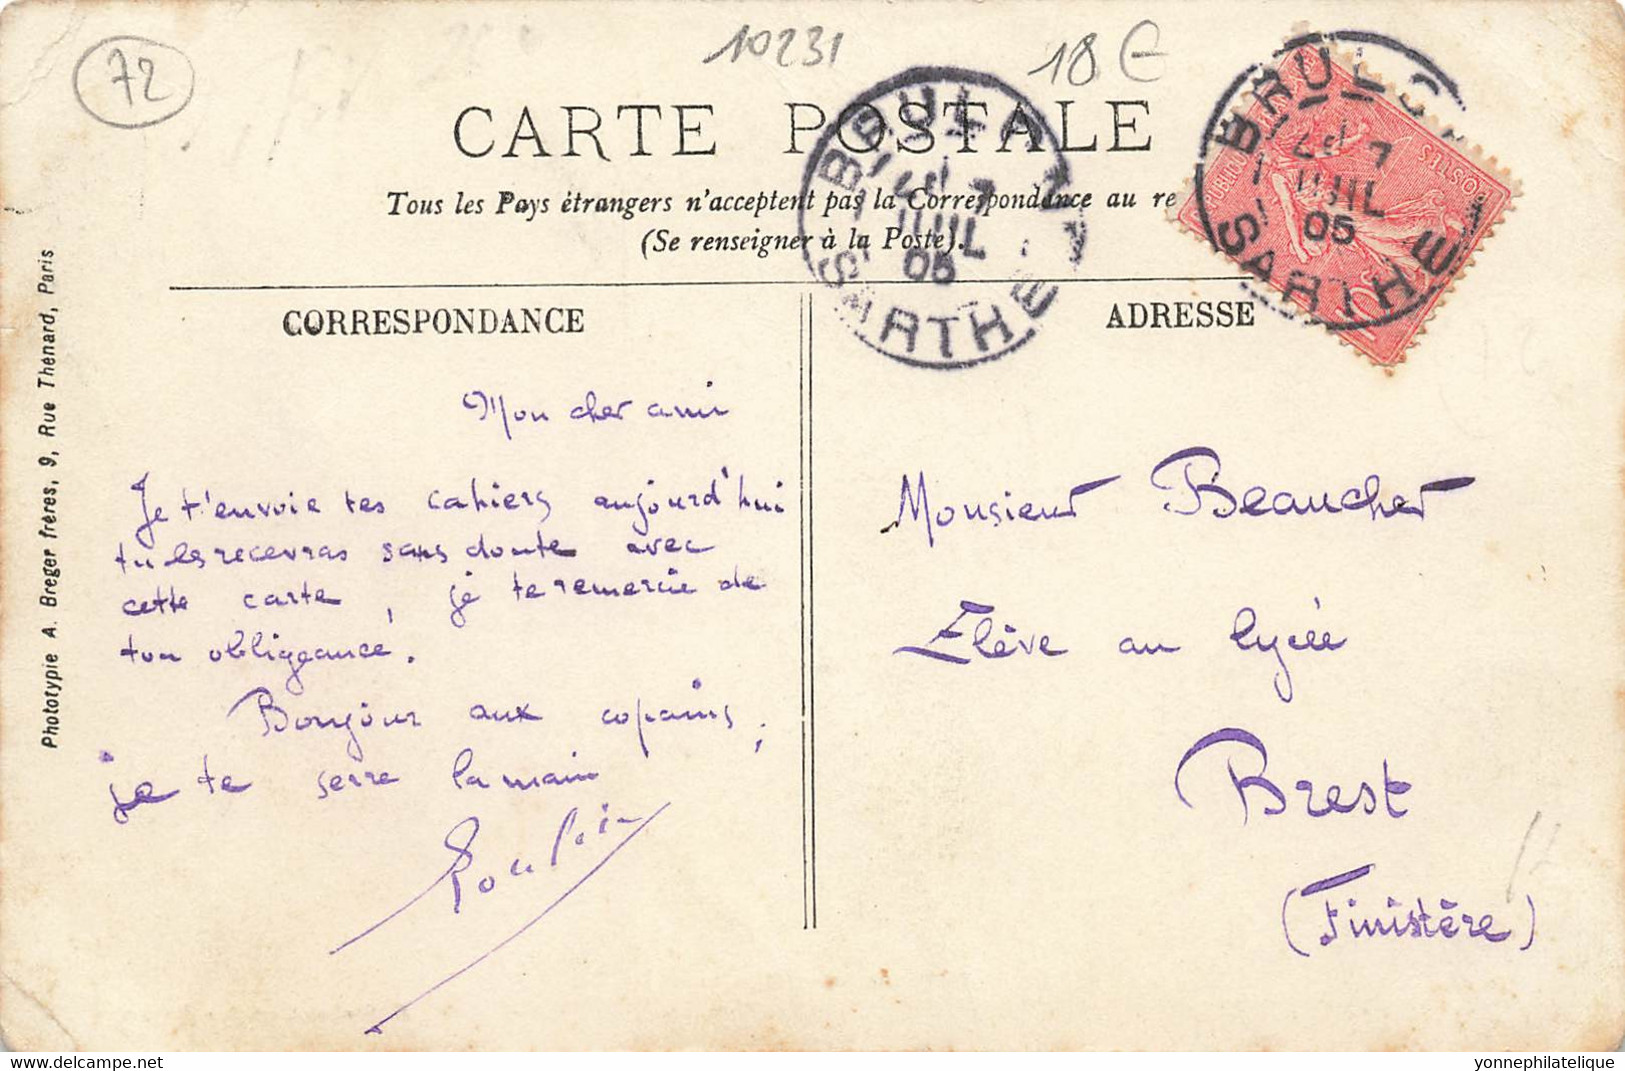 72
10231
18 €
CARTE POSTALE
Tous les Pays étrangers n'acceptent pas la Correspondance au re
(Se renseigner à la Poste).
BRULON
7
JUIL
05
SARTHE
BRULO
7
JUIL
05
SARTHE
POSTES
CORRESPONDANCE
ADRESSE
Phototypie A. Breger frères, 9, Rue Thénard, Paris
Mon cher ami
Je t'envoie tes cahiers aujourd'hui
tu les recevras sans doute avec
cette carte, je te remercie de
ton obligeance.
Bonjour aux copains,
je te serre la main
Monsieur Beaucher
Elève au lycée
Brest
(Finistère)
delcampe.net
yonnephilatelique